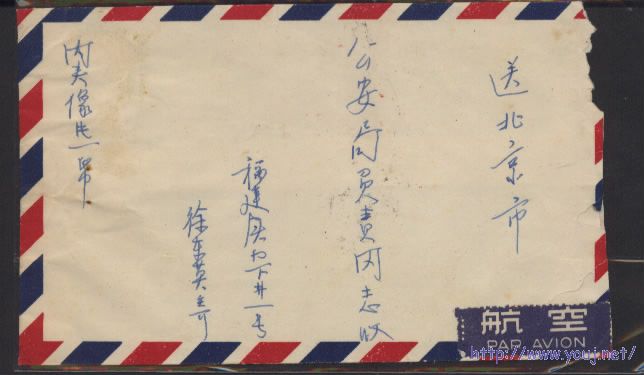 送北京市
公安局负责同志收
福建 下井一号
徐
内夹像片一
航空
PAR AVION
http://www.youj.net/